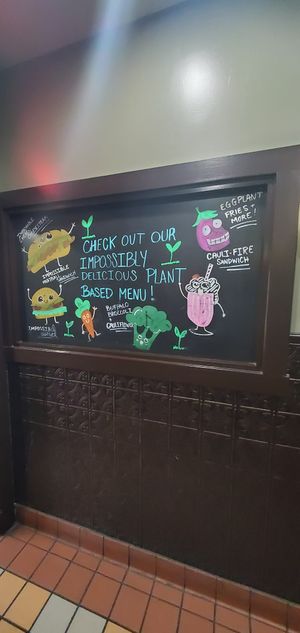 CHECK OUT OUR
IMPOSSIBLY
DELICIOUS PLANT
BASED MENU!
EGGPLANT
FRIES &
MORE!
CAULI-FIRE
SANDWICH
IMPOSSIBLE
SANDWICH
IMPOSSIBLE
BUFFALO
BROCCOLI